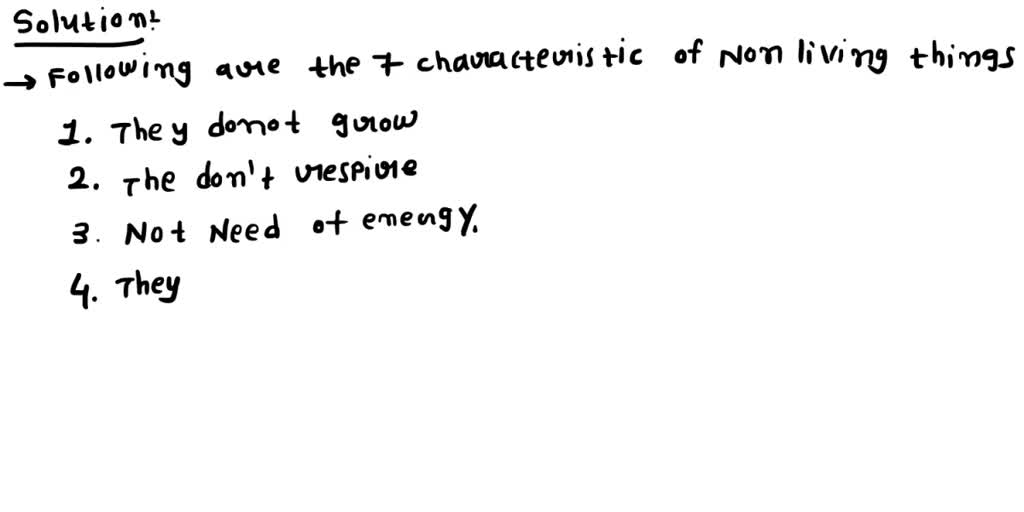 Solution:
→ Following are the 7 characteristic of Non living things
1. They donot grow
2. The don't respire
3. Not Need of energy.
4. They